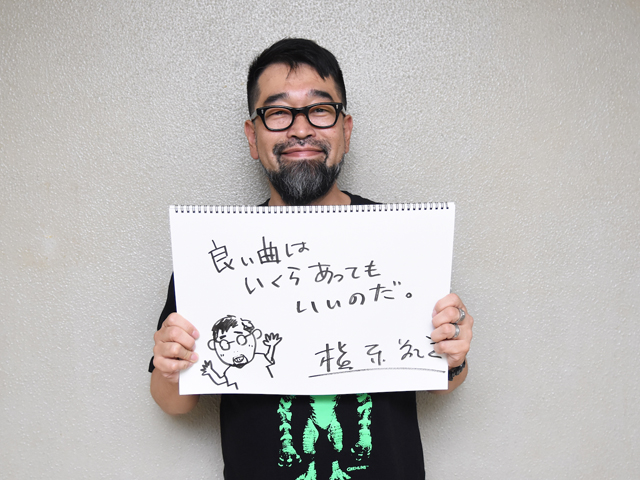 良い曲は
いくらあっても
いいのだ。
槇原敬之